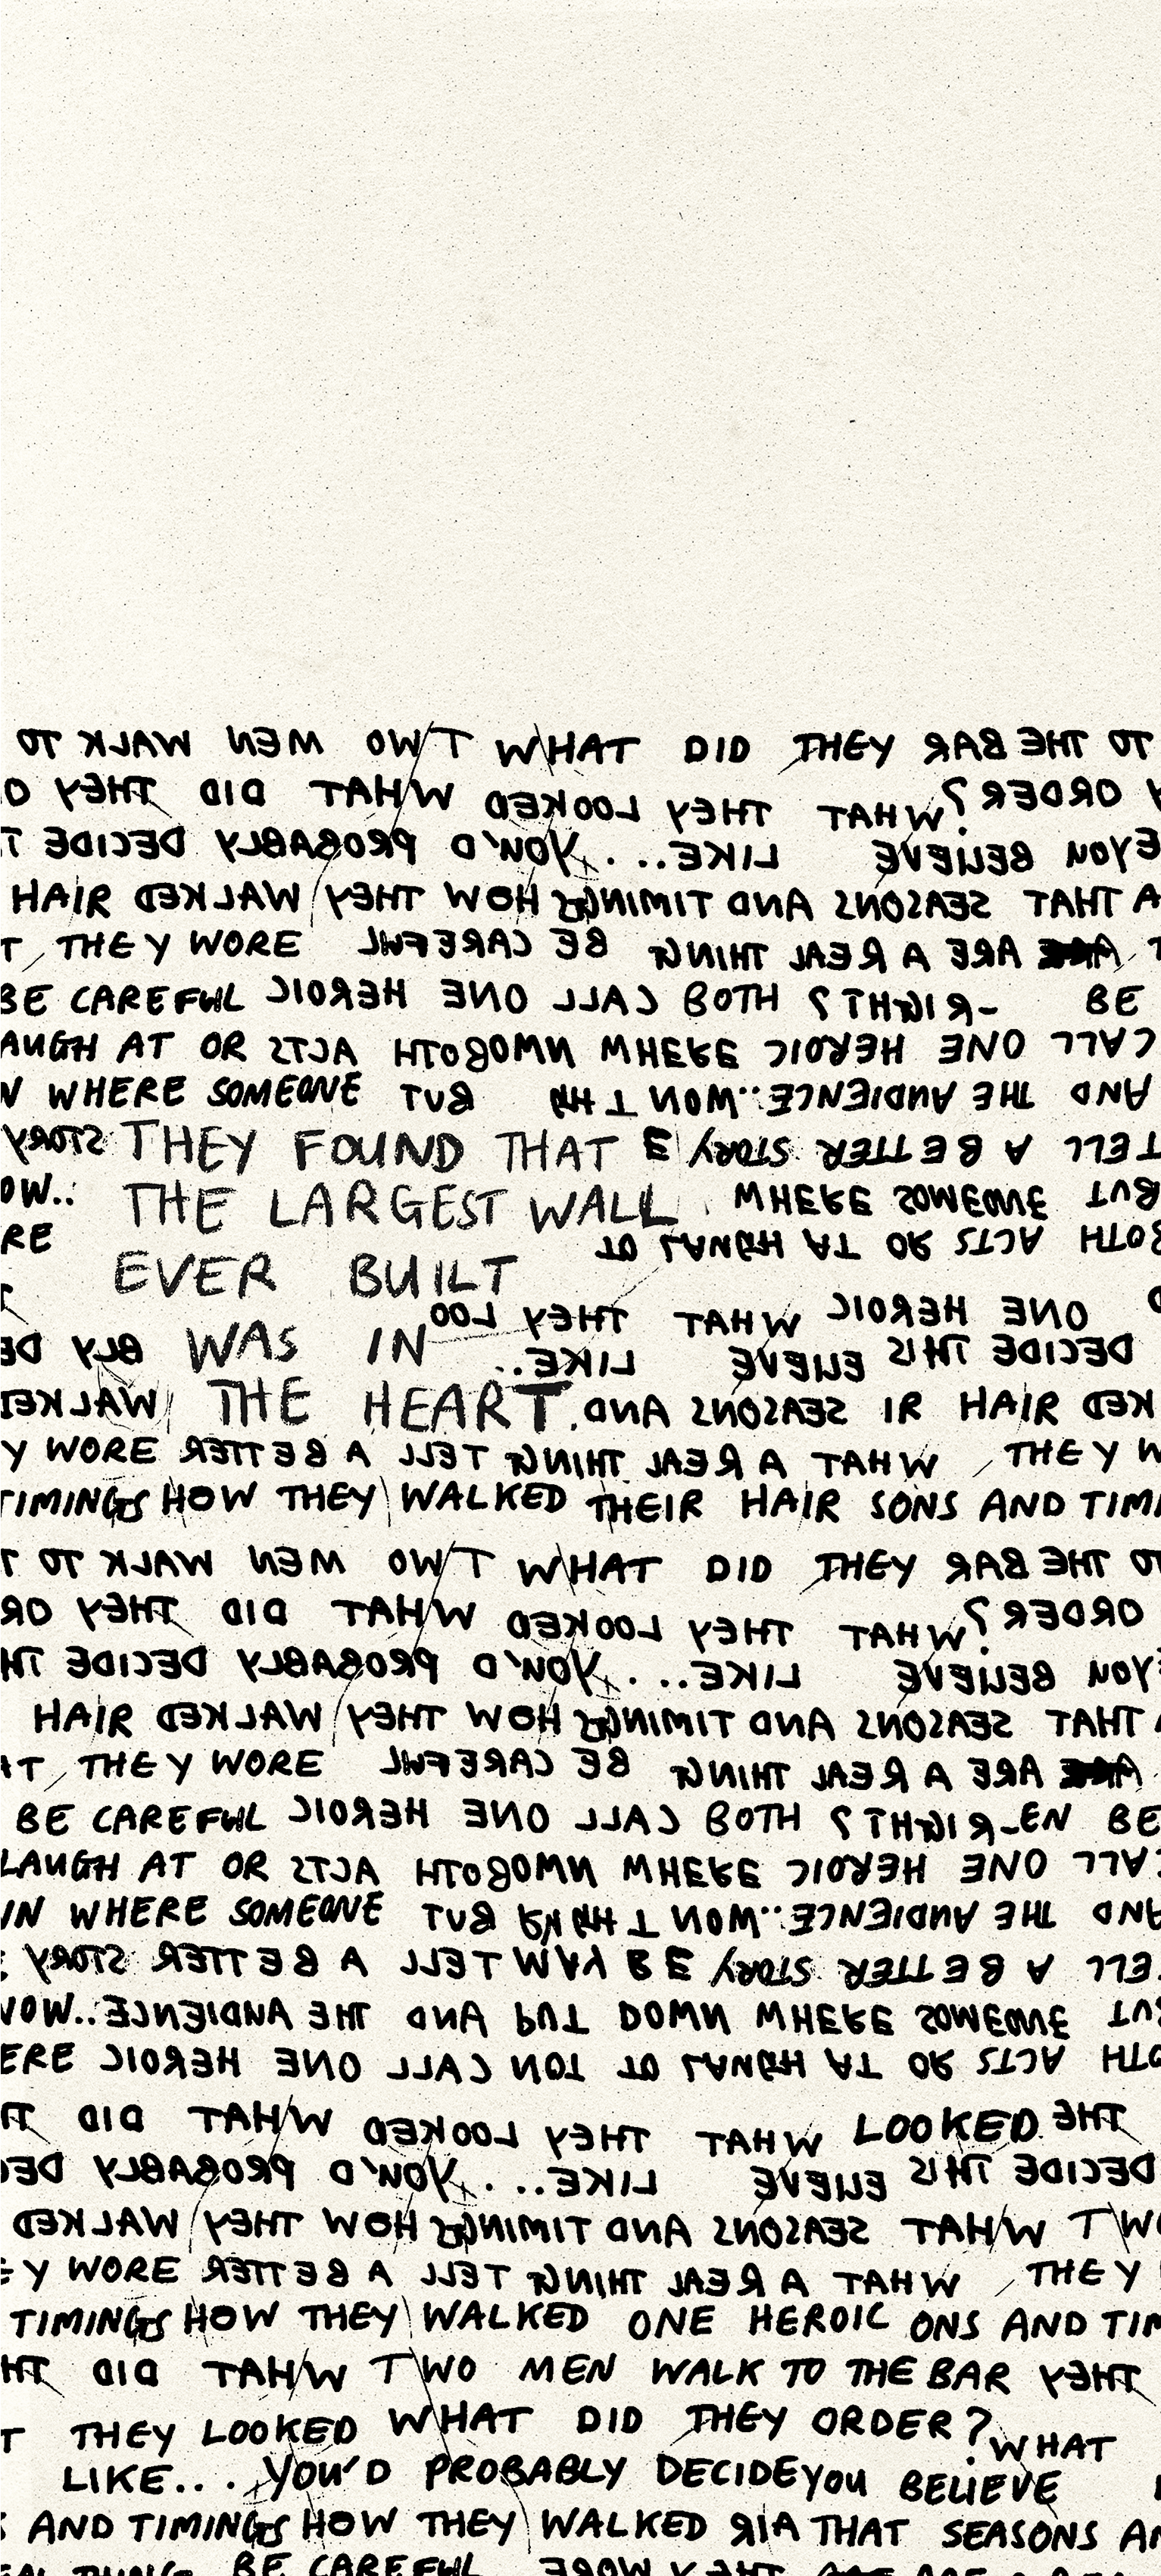 TO WALK MEN TWO WHAT DID THEY BAR THE TO
THEY DID WHAT LOOKED THEY WHAT ORDER?
DECIDE PROBABLY YOU'D LIKE... BELIEVE YOU
HAIR WALKED THEY HOW TIMINGS AND SEASONS THAT
THEY WORE CAREFUL BE THING REAL A ARE
BE CAREFUL HEROIC ONE CALL BOTH RIGHT? BE
LAUGH AT OR ACTS BOTH DOWN WHERE HEROIC ONE CALL
WHERE SOMEONE BUT NOW.. AUDIENCE THE AND
STORY THEY FOUND THAT STORY BETTER A TELL
OW.. THE LARGEST WALL WHERE SOMEONE BUT
RE TO LAUGH AT OR ACTS BOTH
EVER BUILT
THEY WHAT HEROIC ONE
WAS IN LIKE.. THIS DECIDE
WALKED THE HEART. AND SEASONS HAIR
Y WORE BETTER A TELL THING REAL A WHAT THEY
TIMINGS HOW THEY WALKED THEIR HAIR SONS AND TIMI
TO WALK MEN TWO WHAT DID THEY BAR THE TO
THEY DID WHAT LOOKED THEY WHAT ORDER?
DECIDE PROBABLY YOU'D LIKE... BELIEVE YOU
HAIR WALKED THEY HOW TIMINGS AND SEASONS THAT
THEY WORE CAREFUL BE THING REAL A ARE
BE CAREFUL HEROIC ONE CALL BOTH RIGHT? BE
LAUGH AT OR ACTS BOTH DOWN WHERE HEROIC ONE CALL
IN WHERE SOMEONE BUT NOW.. AUDIENCE THE AND
STORY BETTER A TELL STORY BETTER A TELL
NOW.. AUDIENCE THE AND PUT DOWN WHERE SOMEONE BUT
ERE HEROIC ONE CALL NOT TO LAUGH AT OR ACTS BOTH
DID WHAT LOOKED THEY WHAT LOOKED THE
PROBABLY YOU'D LIKE... THIS DECIDE
WALKED THEY HOW TIMINGS AND SEASONS WHAT TWO
Y WORE BETTER A TELL THING REAL A WHAT THEY
TIMINGS HOW THEY WALKED ONE HEROIC ONS AND TIM
DID WHAT TWO MEN WALK TO THE BAR THEY
T THEY LOOKED WHAT DID THEY ORDER? WHAT
LIKE... YOU'D PROBABLY DECIDE YOU BELIEVE
AND TIMINGS HOW THEY WALKED AIR THAT SEASONS
BE CAREFUL WORE THEY